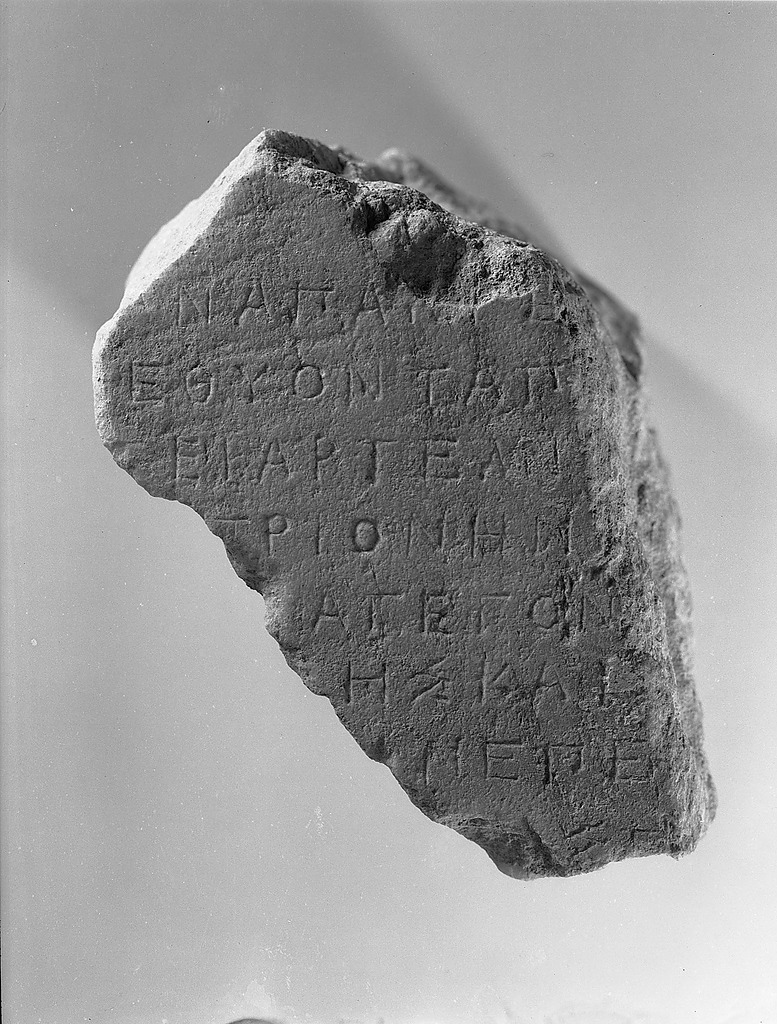 ΝΑΠΑΓΓΕ
ΕΘΥΟΝΤΑΠ
ΤΕΙΑΡΤΕΛΙ
ΤΡΙΟΝΗΝ
ΑΓΕΓΟΝ
ΗΣΚΑΙ
ΠΕΡΕ